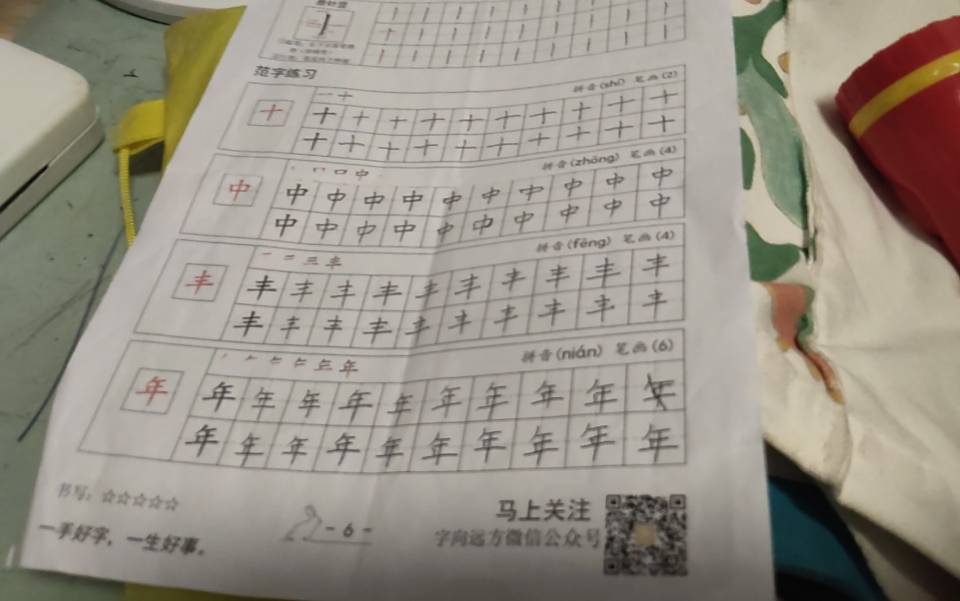 范字练习
一 十 拼音(shí) 笔画(2)
十 十 十 十 十 十 十 十 十 十 十
十 十 十 十 十 十 十 十 十 十
口 中 拼音(zhōng) 笔画(4)
中 中 中 中 中 中 中 中 中 中 中
中 中 中 中 中 中 中 中 中 中
一 二 三 丰 拼音(fēng) 笔画(4)
丰 丰 丰 丰 丰 丰 丰 丰 丰 丰 丰
丰 丰 丰 丰 丰 丰 丰 丰 丰 丰
年 拼音(nián) 笔画(6)
年 年 年 年 年 年 年 年 年 年
年 年 年 年 年 年 年 年 年 年
书写：☆☆☆☆☆
一手好字，一生好事。
- 6 -
马上关注
字向远方微信公众号